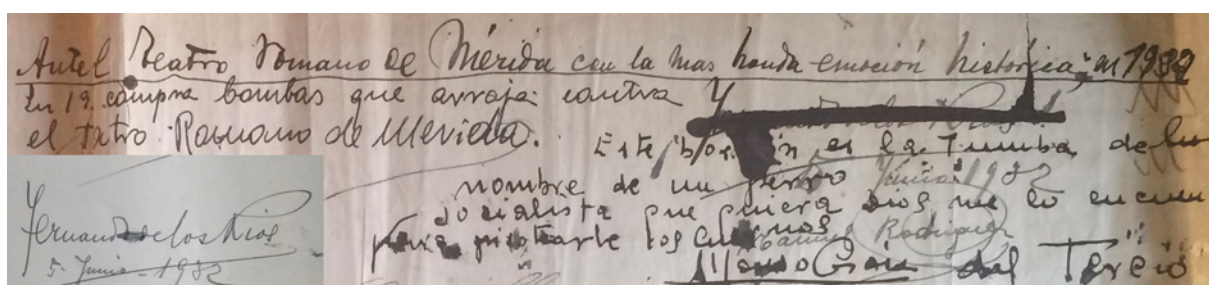 Antel Teatro Romano de Mérida con la mas honda emoción historica; en 1932
En 19. compra bombas que arroja contra
el tatro Romano de Merida.
Este borrón es la Tumba de
nombre de un perro Junio 1932
Socialista que quiera Dios me lo encuen
para los Rodriguez
del Tercio
Fernando de los Rios
5. Junio - 1932